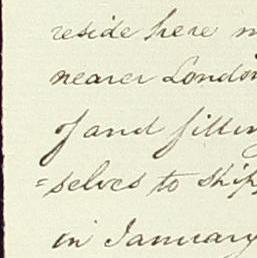 reside here
nearer London
of and
=selves to ship
in January